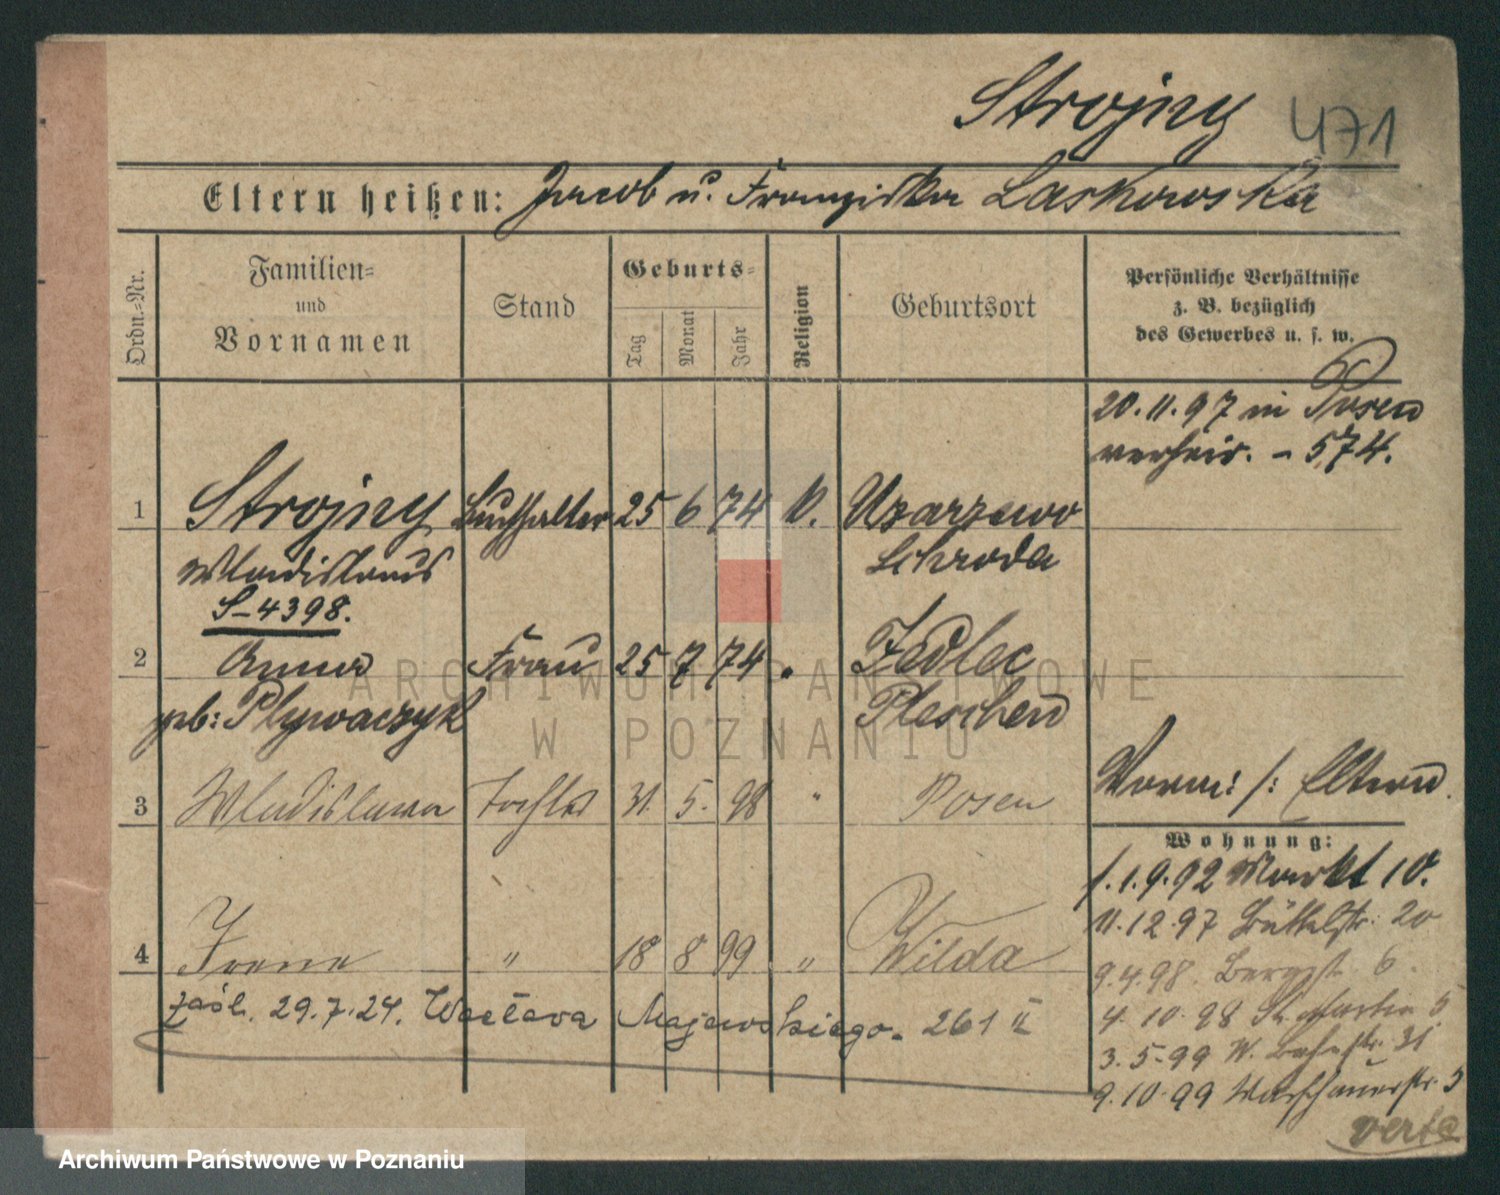 Strojny 471
Eltern heißen: Jacob u. Franziska Laskowska
Ordn.=Nr.
Familien=
und
Vornamen
Stand
Geburts=
Tag
Monat
Jahr
Religion
Geburtsort
Persönliche Verhältnisse
z. B. bezüglich
des Gewerbes u. s. w.
20.11.97 in Posen
verheir. - 574.
1 Strojny Buchhalter 25 6 74 k. Uzarzewo
Wladislaus Schroda
S-4398.
2 Anna Frau 25 7 74 " Jedlec
geb: Plywaczyk Pleschen
3 Wladislawa Tochter 31. 5. 98 " Posen
Vorm: /: Eltern
Wohnung:
1.9.92 Markt 10.
11.12.97 Büttelstr: 20
9.4.98. Bergstr. 6.
4.10.98 St. Martin 5
3.5.99 W. Bahnstr. 31
9.10.99 Warschauerstr. 3
verte
4 Irene " 18 8 99 " Wilda
zaśl. 29.7.24. Wacława Majewskiego. 261 II
ARCHIWUM PAŃSTWOWE
W POZNANIU
Archiwum Państwowe w Poznaniu